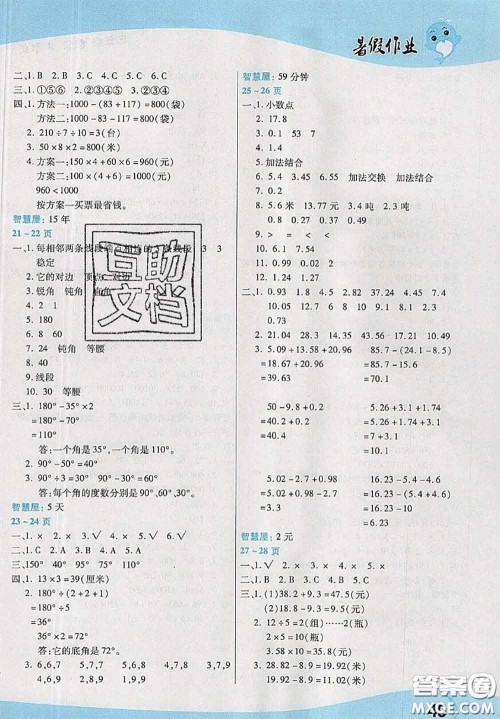 暑假作业
二、1. B  2. B  3. C  4. B
三、1. ①⑤⑥  2. ②③④  3. ②④⑤
四、1. 方法一:1000-(83+117)=800(袋)
方法二:1000-83-117=800(袋)
2. 210÷7÷10=3(台)
3. 50×8×2=800(米)
4. 方案一:150×4+60×6=960(元)
方案二:100×(4+6)=1000(元)
960<1000
按方案一买票最省钱。
智慧屋: 15年
21~22页
一、1. 每相邻两条线段 3  3
稳定
2. 它的对边
3. 锐角  钝角
4. 2  1
5. 180
6. 8  60
7. 24  钝角  等腰
8. 40
9. 线段
10. 30  等腰
三、1. 180°-35°×2
=180°-70°
=110°
答:一个角是35°,一个角是110°。
2. 90°-50°=40°
3. 180°÷3=60°  90°-60°=30°
答:每个角的度数分别是90°、60°、30°。
智慧屋: 5天
23~24页
一、1. ×  2. ×  3. √  4. ×  5. √
二、1. C  2. A  3. A  4. C  5. A
三、150°  40°  90°  75°  75°  90°
四、1. 13×3=39(厘米)
2. 180°÷(2+2+1)
=180°÷5
=36°
36°×2=72°
答:它的底角是72°。
3. 6,6,7  5,7,7  4,7,8  3,7,9
6,4,9  5,5,9  2,8,9  1,9,9
智慧屋: 59分钟
25~26页
一、1. 小数点
2. 17.8
3. 0.1  53  7
4. 9.4
5. 加法结合
6. 加法结合  加法交换  加法结合
7. 0.9
8. 5.6米  3.4米  2.4吨  1.7吨
9. 6.9
10. 0.1  7.49
11. 0  21
12. 0.57
二、1. 0.93  2.82  0.38  4.9  27.37  0.88
2. 7.24  18.66  13.27  10.49  6.91
3. 5.02+13.58+0.42  85.7-(24.1-8.3)
=5.02+14  =85.7-15.8
=19.02  =69.9
5.4+10.6+4.67  60.87-8.87-14.3
=16+4.67  =52-14.3
=20.67  =37.7
50-9.8+0.2  0.36+5.7+1.64
=40.2+0.2  =0.36+1.64+5.7
=40.4  =2+5.7
=7.7
5.02-0.43-3.57  16.23-5.8-4.2
=5.02-(0.43+3.57)  =16.23-(5.8+4.2)
=5.02-4  =16.23-10
=1.02  =6.23
智慧屋: 2元
27~28页
一、1. ×  2. ×  3. ×  4. √  5. √
二、1. C  2. A  3. C  4. C  5. C
三、1. (1)38.2+9.3=47.5(元)
(2)38.2-9.3=28.9(元)
2. 12÷5=2(组)……2(瓶)
2×5=10(瓶)
3. 18.82+1.1=19.92(元)
28.8-19.92=8.88(元)
互助
文档
答案圈
MXQE.COM